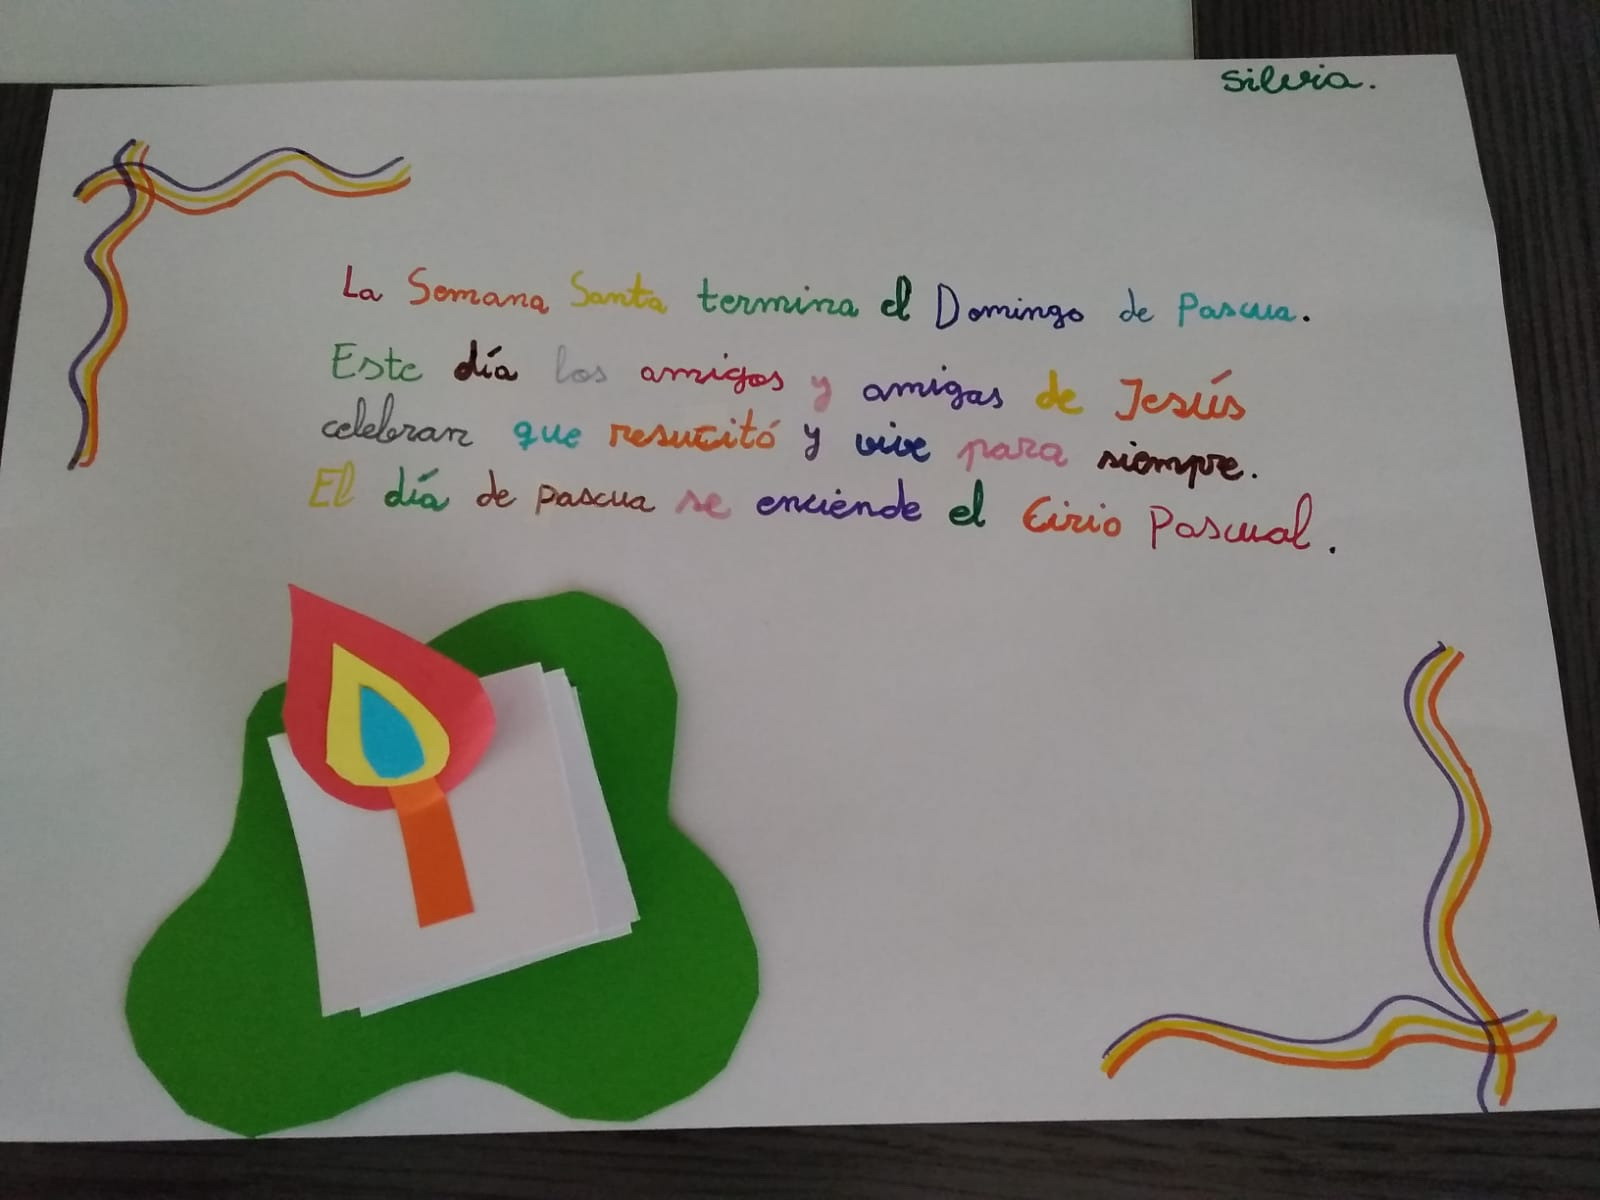 Silvia.
La Semana Santa termina el Domingo de Pascua.
Este día los amigos y amigas de Jesús
celebran que resucitó y vive para siempre.
El día de pascua se enciende el Cirio Pascual.